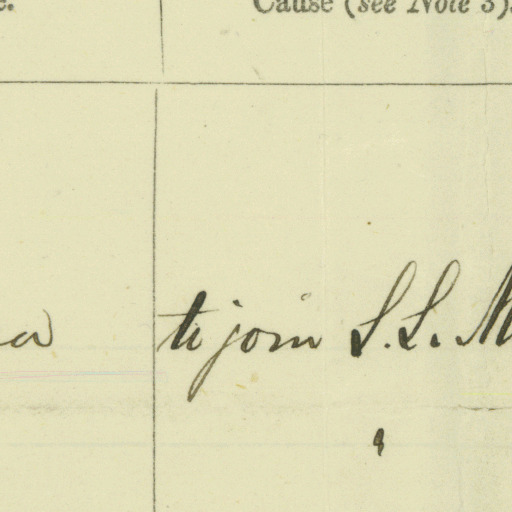 Cause (see Note 3).
to join S.S. M